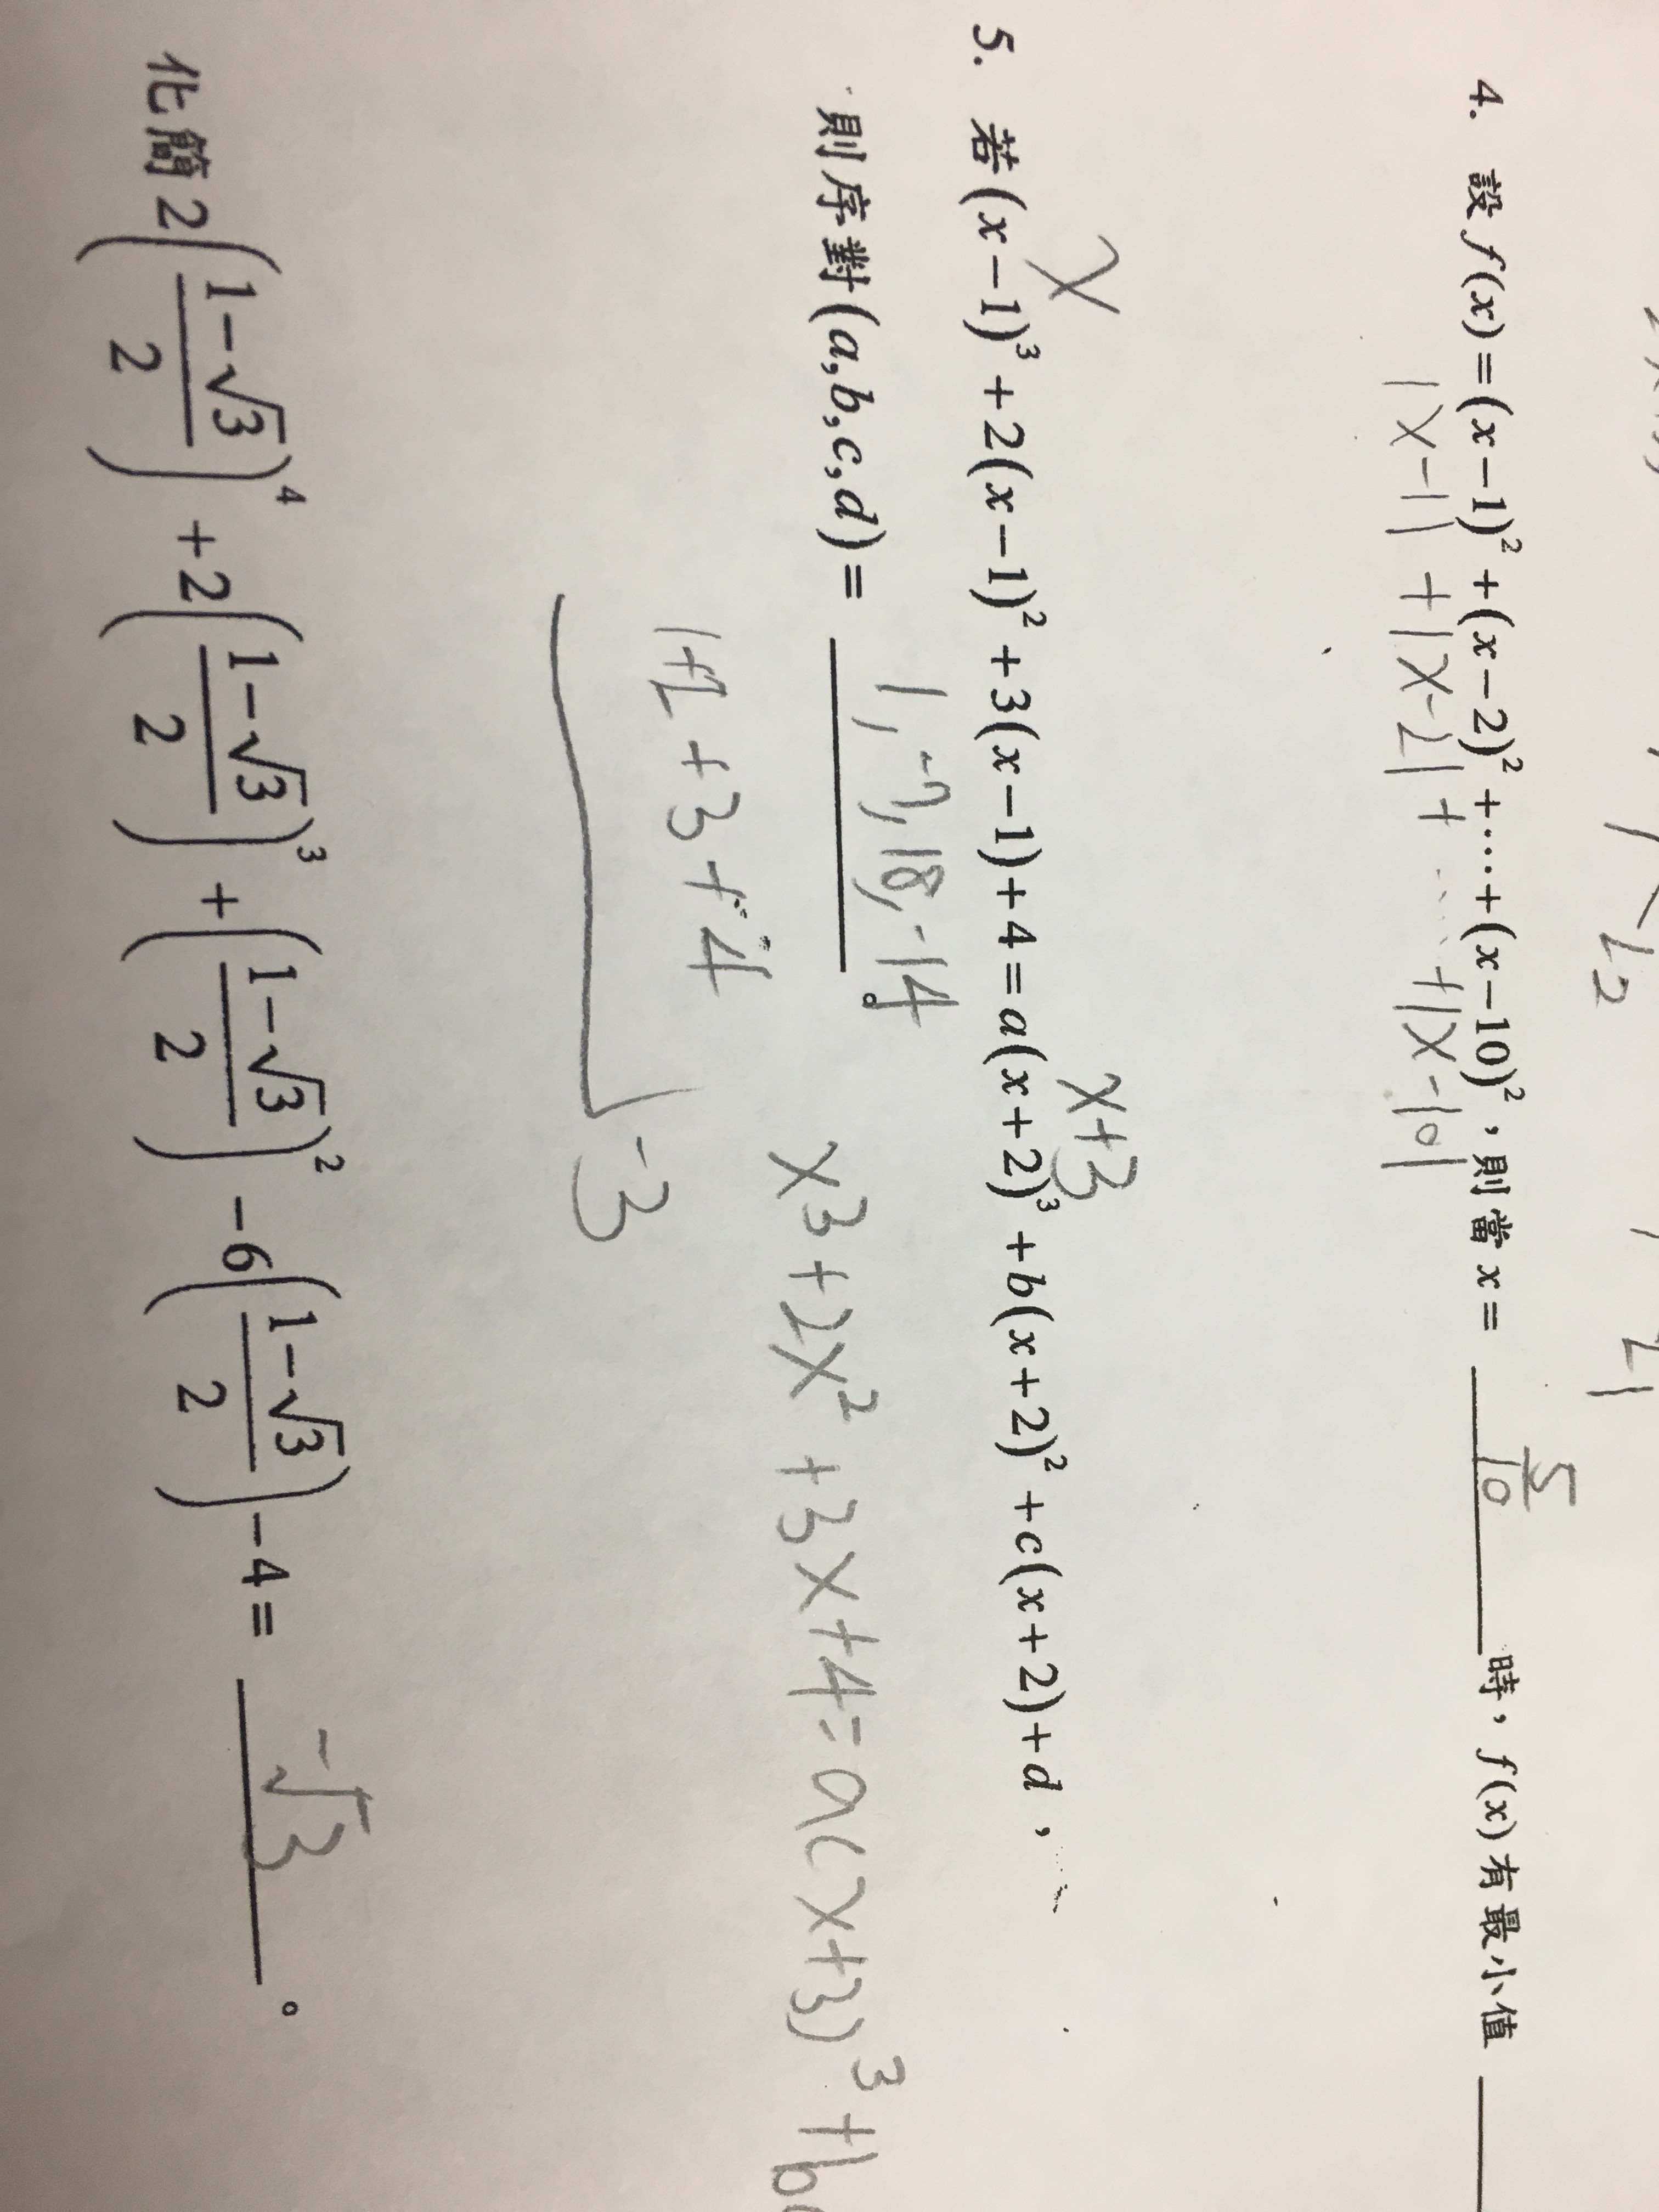 4. 設 f(x)=(x-1)²+(x-2)²+⋯+(x-10)²,則當 x= 5/10 時,f(x)有最小值
|x-1|+|x-2|+⋯+|x-10|
x x+3
5. 若(x-1)³+2(x-1)²+3(x-1)+4=a(x+2)³+b(x+2)²+c(x+2)+d,
則序對(a,b,c,d)= 1,-7,18,-14 。
x3+2x²+3x+4=a(x+3)³+b
1+2+3+4
-3
化簡2((1-√3)/2)⁴+2((1-√3)/2)³+((1-√3)/2)²-6((1-√3)/2)-4= -√3 。